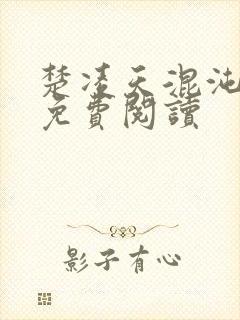 楚凌天混沌
免費閱讀
影子有心